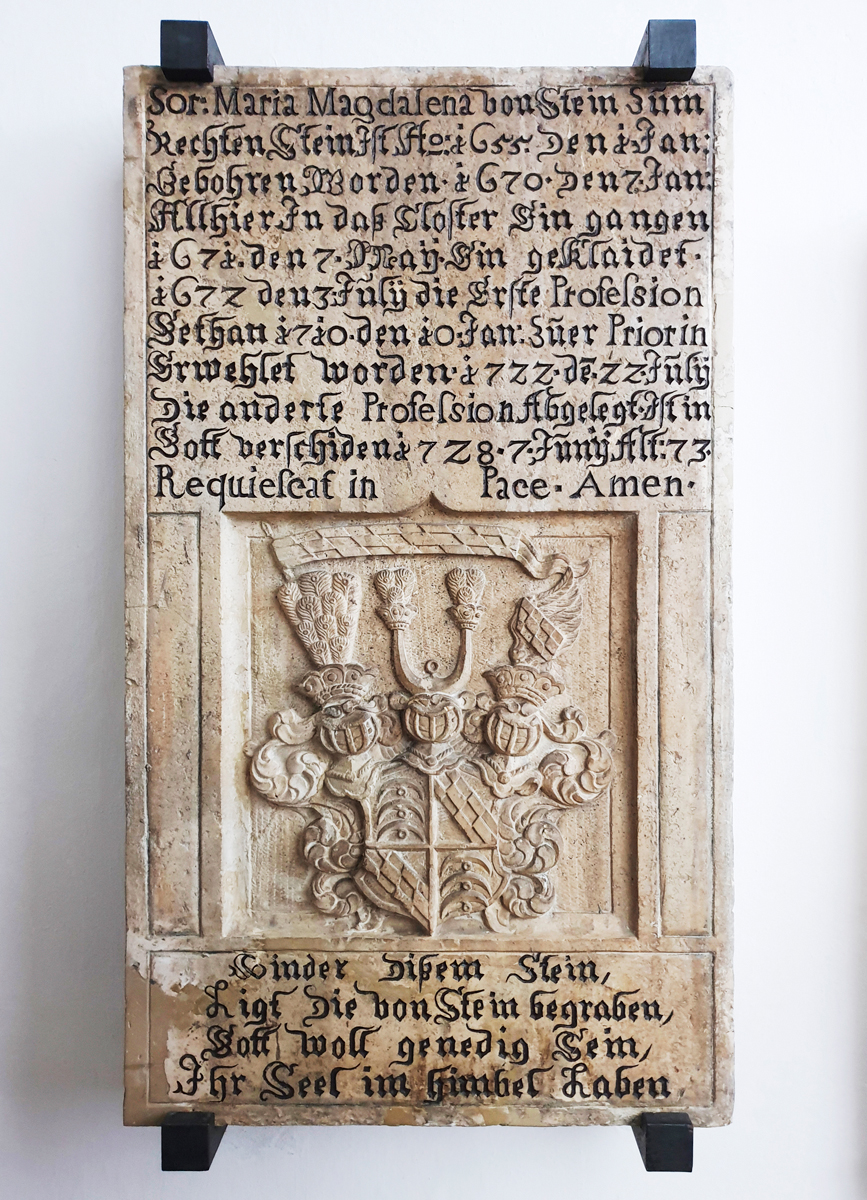 Sor: Maria Magdalena von Stein Zum
Rechten Stein Ist Ao: 1655. Den 1. Jan:
Gebohren, Worden. 1670. Den 7. Jan:
Allhier In daß Closter Ein gangen
1671. den 7. May. Ein geKlaidet.
1672 den 3. Júlÿ die Erste Profession
Gethan 1710. den 10. Jan: Zúer Priorin
Erwehlet worden. 1722. dē. 22. Júlÿ
Die anderte Profession Abgelegt. Ist in
Gott verschiden 1728. 7. Júnÿ Alt: 73.
Requiescat in Pace. Amen.
Vnder Dißem Stein,
Ligt Die von Stein begraben,
Gott woll genedig Sein,
Ihr Seel im himbel Laben